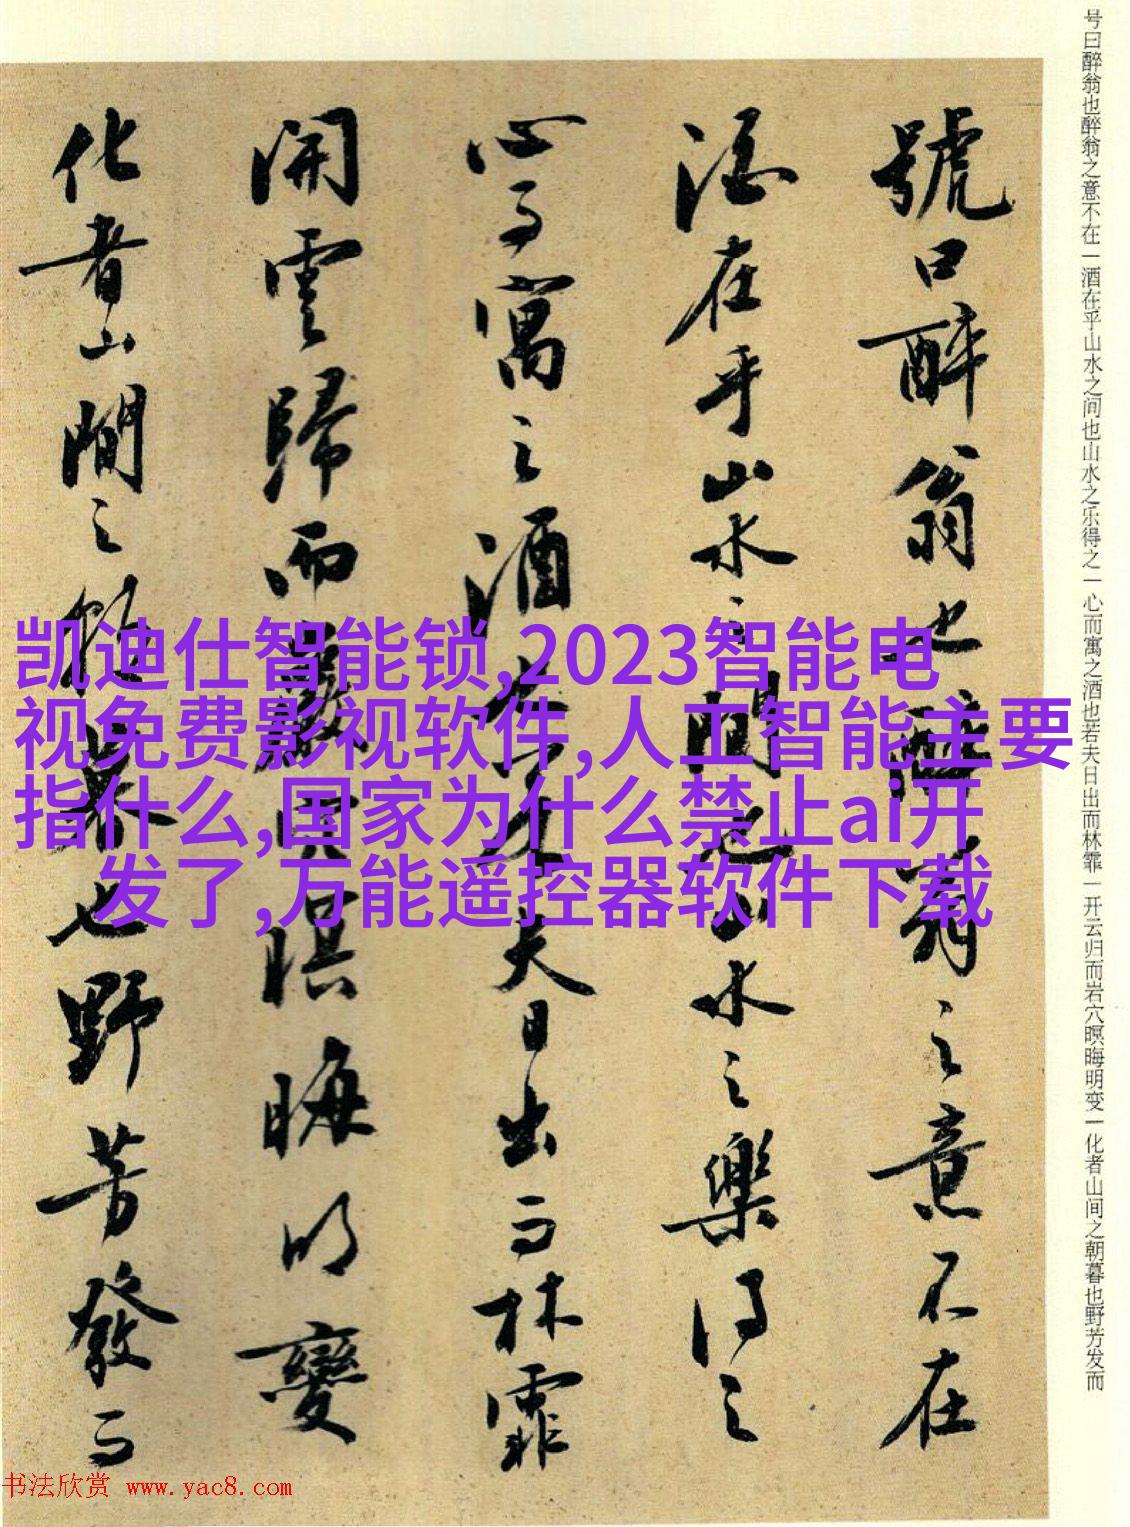 号曰醉翁也醉翁之意不在一酒在乎山水之间也山水之乐得之一心而寓之酒也若夫日出而林霏一开云归而岩穴暝晦明变一化者山间之朝暮也野芳发而
號曰醉翁也醉翁之意不在
酒在乎山水之間也山水之樂得之
心而寓之酒也若夫日出而林霏
開雲歸而巖穴暝晦明變
化者山間之朝暮也野芳發而
凯迪仕智能锁,2023智能电
视免费影视软件,人工智能主要
指什么,国家为什么禁止ai开
发了,万能遥控器软件下载
书法欣赏 www.yac8.com